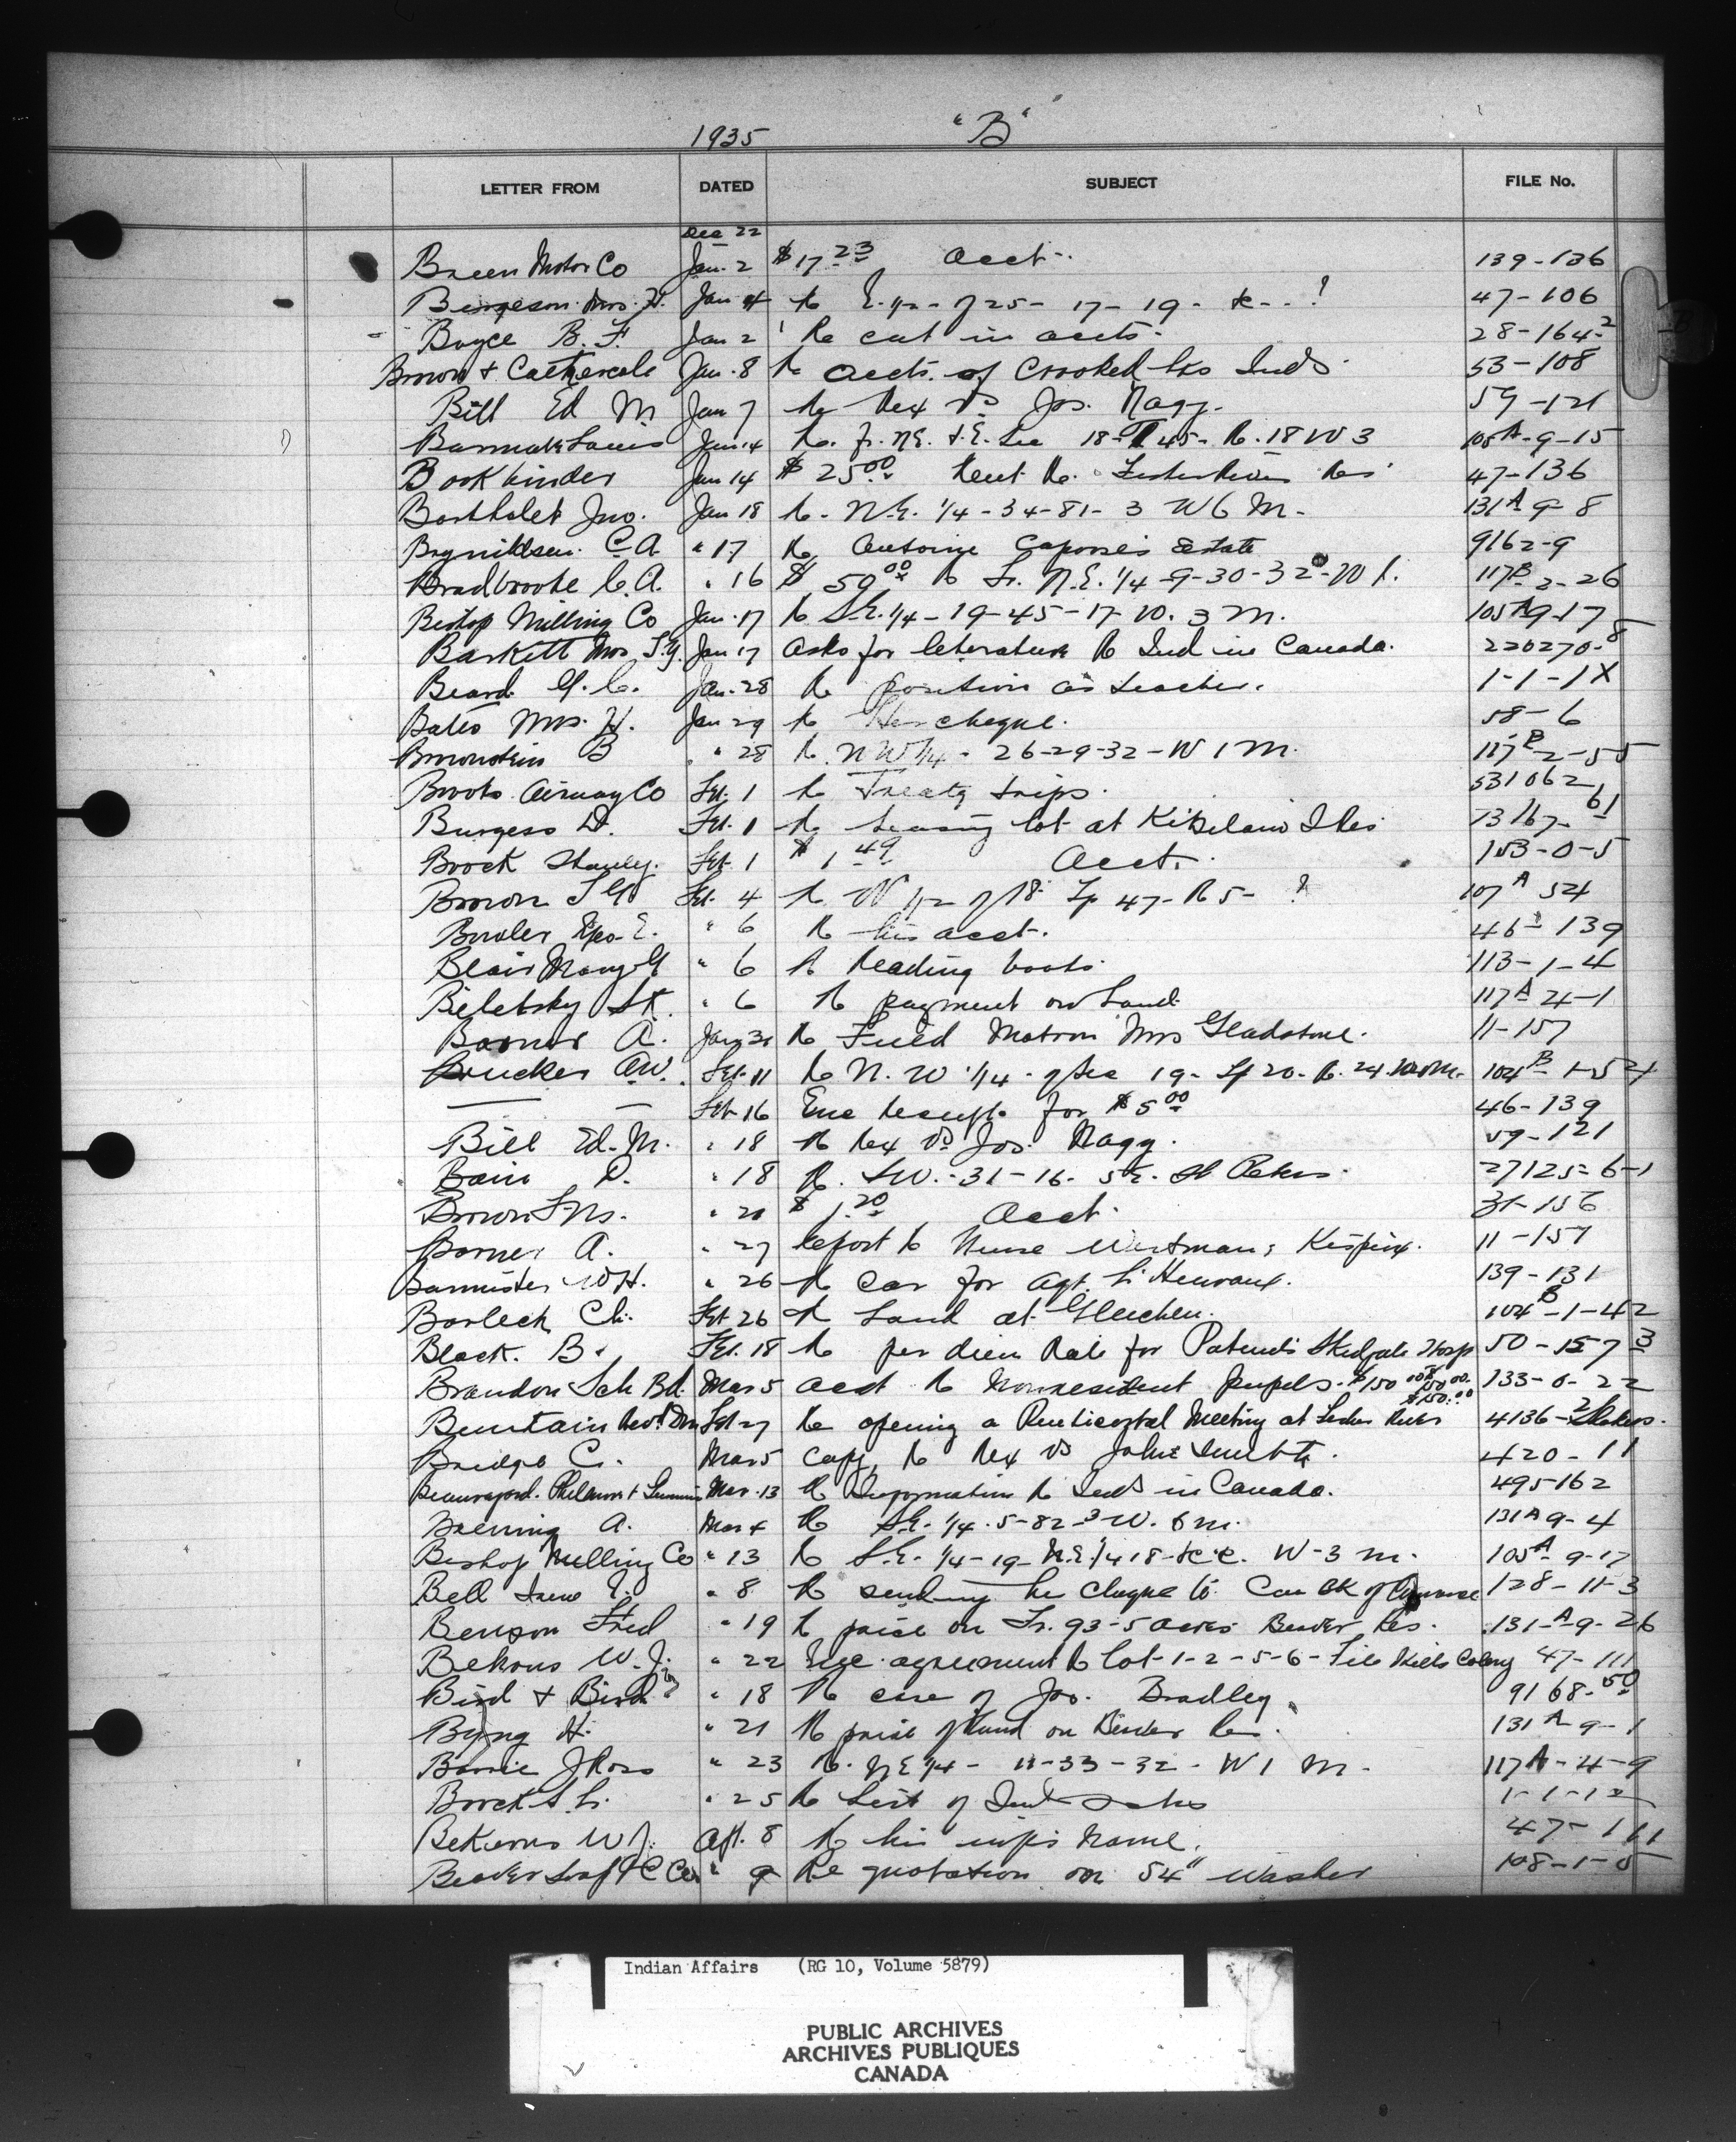 1935 "B"
LETTER FROM DATED SUBJECT FILE No.
Dec 22
Breen Motor Co Jan. 2 $17.23 Acct. 139-136
Mrs. H. Jan 4 Re E. 1/2 - of 25 - 17 - 19 - &c - - ? 47-106
Boyce B. F. Jan 2 Re cut in accts. 28-164-2
Brown & Jan. 8 Re accts. of Crooked Lks Inds 53-108
Bill Ed M Jan 7 Re Rex vs Jos. Nagy. 59-121
Jan. 14 Re. Fr. N.E. & S.E. Sec 18-T 45-R. 18 W 3 105A-9-15
Bookbinder Jan 14 $25.00 Rent Re. Res 47-136
Barthalet Jno. Jan 18 Re. N.E. 1/4-34-81-3 W 6 M. 131A-9-8
C.A " 17 Re Antoine Estate 9162-9
Bradbrooke C.A. " 16 $50.00 Re Fr. N.E. 1/4-9-30-32-W 1. 117B-2-26
Bishop Milling Co Jan. 17 Re S.E. 1/4-19-45-17-W. 3 M. 105A-9-17
Barkett Mrs Jan 17 Asks for literature Re Ind in Canada. 220270-8
Beard G. C. Jan. 28 Re position as teacher. 1-1-1X
Bates Mrs. H. Jan 29 Re Her cheque. 58-6
Brownstein B " 28 Re. N W 1/4 - 26-29-32-W 1 M. 117B-2-55
Brooks Airway Co Feb. 1 Re Treaty trips. 531062
Burgess D. Feb. 1 Re leasing lot at Kitsilano I Res 73167-61
Brock Stanley. Feb. 1 $1.49 Acct. 153-0-5
Brown Feb. 4 Re W 1/2 of 18 Tp 47-R 5- ? 107A 54
Geo. E. " 6 Re his acct. 46-139
Blair Mary " 6 Re Reading books 113-1-4
Biletsky St. " 6 Re payment on Land 117A 4-1
Barner A. Jan 31 Re Field Matron Mrs Gladstone. 11-157
Brucker A.W. Feb. 11 Re N. W 1/4 - of Sec 19 - Tp 20 - R. 24. 104B-1-54
— — Feb 16 Enc Receipt for $5.00 46-139
Bill Ed. M. " 18 Re Rex vs Jos. Nagy. 59-121
Bain D. " 18 Re. S.W.-31-16-5 E. St Peters. 27125-6-1
Brown $1.20 Acct. 31-156
Barner A. " 27 Report Re Nurse Kispiox. 11-157
Bannister W H. " 26 Re Car for Agt. 139-131
Barleck Ch. Feb 26 Re Land at Gleichen. 104B-1-42
Black. B. Feb. 18 Re per diem Rate for Patients Hosp 50-157-3
Brandon Sch Bd. Mar 5 Acct Re Nonresident pupils. $150.00 $150.00 133-0-22
Feb 27 Re opening a Pentecostal Meeting at River 4136-2
Bridge C. Mar 5 Copy Re Rex vs John 420-11
Mar. 13 Re Information Re Inds in Canada. 495162
A. Mar 4 Re S.E. 1/4-5-82-3 W. 6 M. 131A 9-4
Bishop Milling Co " 13 Re S.E. 1/4-19-N.E 1/4 18-&c. W-3 M. 105A-9-17
Bell " 8 Re sending his cheque to Can Bk of Commerce 128-11-3
Benson Fred " 19 Re price on Fr. 93-5 acres Beaver Res. 131-A-9-26
W. J. " 22 Enc agreement Re Lot-1-2-5-6-File Hills Colony 47-111
Bird & Bird " 18 Re case of Jos. Bradley. 9168-50
Byng H. " 21 Re price of land on Beaver Res. 131A-9-1
Barrie J Ross " 23 Re. N E 1/4 - 11-33-32 - W 1 M. 117A-4-9
Brock " 25 Re List of Ind 1-1-12
W J. Apl. 8 Re his wife's name. 47-111
" 9 Re quotation on 54" Washer 108-1-5
Indian Affairs (RG 10, Volume 5879)
PUBLIC ARCHIVES
ARCHIVES PUBLIQUES
CANADA